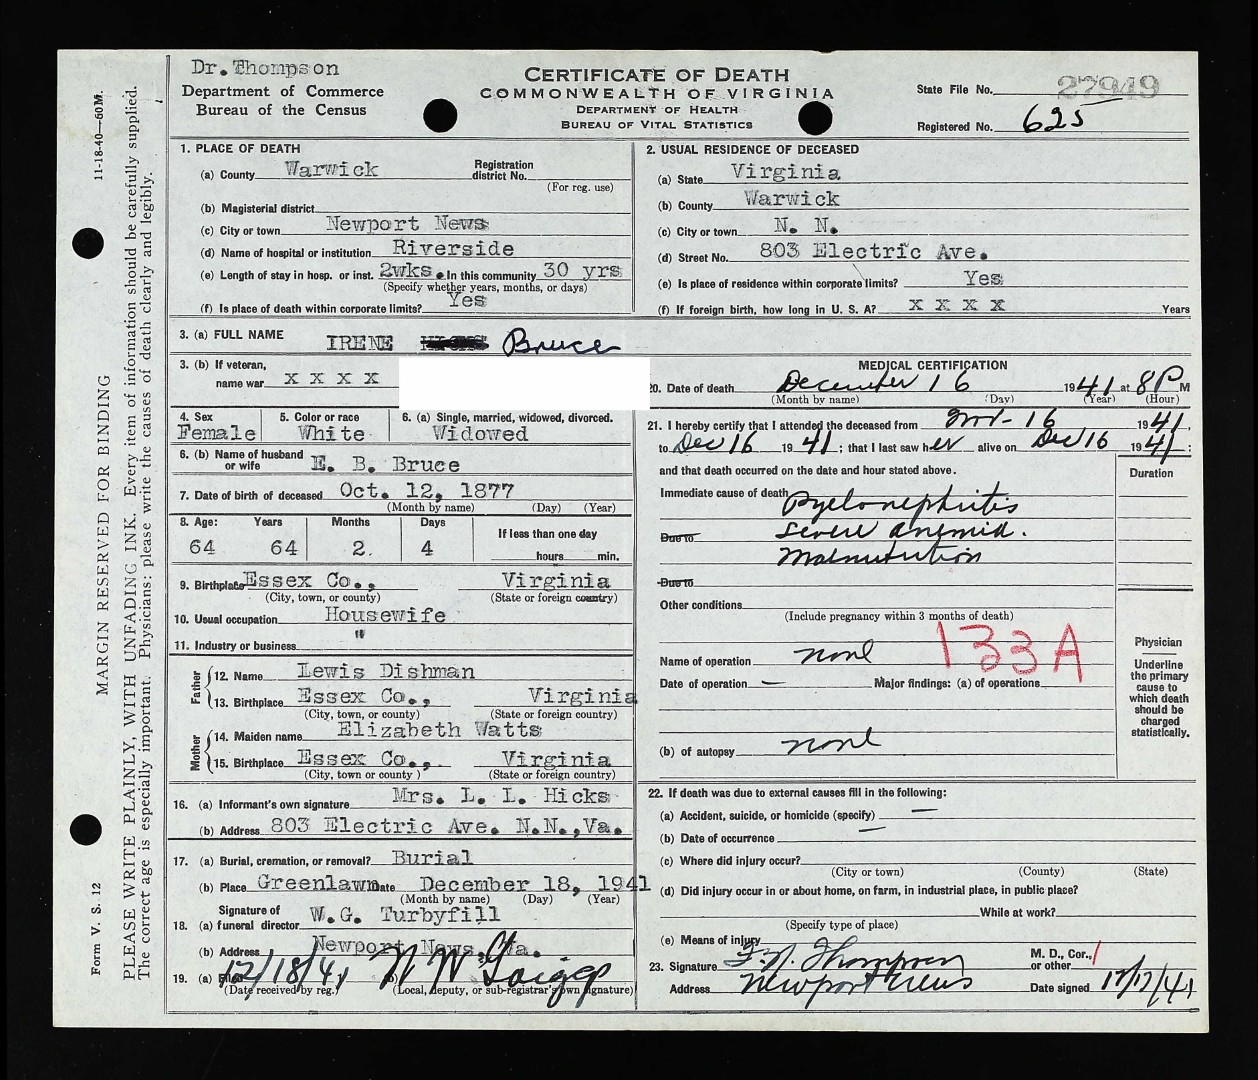 Dr. Thompson
Department of Commerce
Bureau of the Census
CERTIFICATE OF DEATH
COMMONWEALTH OF VIRGINIA
DEPARTMENT OF HEALTH
BUREAU OF VITAL STATISTICS
State File No. 27949
Registered No. 625
11-18-40—60M.
MARGIN RESERVED FOR BINDING
PLEASE WRITE PLAINLY, WITH UNFADING INK. Every item of information should be carefully supplied.
The correct age is especially important. Physicians: please write the causes of death clearly and legibly.
Form V. S. 12
1. PLACE OF DEATH
(a) County Warwick Registration district No.
(For reg. use)
(b) Magisterial district
(c) City or town Newport News
(d) Name of hospital or institution Riverside
(e) Length of stay in hosp. or inst. 2wks. In this community 30 yrs
(Specify whether years, months, or days)
(f) Is place of death within corporate limits? Yes
2. USUAL RESIDENCE OF DECEASED
(a) State Virginia
(b) County Warwick
(c) City or town N. N.
(d) Street No. 803 Electric Ave.
(e) Is place of residence within corporate limits? Yes
(f) If foreign birth, how long in U. S. A? X X X X Years
3. (a) FULL NAME IRENE Bruce
3. (b) If veteran, name war X X X X
4. Sex Female
5. Color or race White
6. (a) Single, married, widowed, divorced. Widowed
6. (b) Name of husband or wife E. B. Bruce
7. Date of birth of deceased Oct. 12, 1877
(Month by name) (Day) (Year)
8. Age: Years Months Days If less than one day
64 64 2. 4 hours min.
9. Birthplace Essex Co., Virginia
(City, town, or county) (State or foreign country)
10. Usual occupation Housewife
11. Industry or business "
Father
12. Name Lewis Dishman
13. Birthplace Essex Co., Virginia
(City, town, or county) (State or foreign country)
Mother
14. Maiden name Elizabeth Watts
15. Birthplace Essex Co., Virginia
(City, town or county) (State or foreign country)
16. (a) Informant's own signature Mrs. L. L. Hicks
(b) Address 803 Electric Ave. N.N.,Va.
17. (a) Burial, cremation, or removal? Burial
(b) Place Greenlawn Date December 18, 1941
(Month by name) (Day) (Year)
18. (a) Signature of funeral director W.G. Turbyfill
(b) Address Newport News, Va.
19. (a) Filed 12/18/41
(Date received by reg.) (Local, deputy, or sub-registrar's own signature)
MEDICAL CERTIFICATION
20. Date of death December 16 1941 at 8 P M
(Month by name) (Day) (Year) (Hour)
21. I hereby certify that I attended the deceased from Nov- 16 1941,
to Dec 16 1941; that I last saw her alive on Dec 16 1941;
and that death occurred on the date and hour stated above.
Duration
Immediate cause of death Pyelonephritis
Due to Severe anemia.
Malnutrition
Due to
Other conditions
(Include pregnancy within 3 months of death)
133A
Name of operation none
Date of operation — Major findings: (a) of operations
(b) of autopsy none
Physician
Underline the primary cause to which death should be charged statistically.
22. If death was due to external causes fill in the following:
(a) Accident, suicide, or homicide (specify) —
(b) Date of occurrence —
(c) Where did injury occur?
(City or town) (County) (State)
(d) Did injury occur in or about home, on farm, in industrial place, in public place?
While at work?
(Specify type of place)
(e) Means of injury
23. Signature Thompson M. D., Cor., or other
Address Newport News Date signed 12/17/41